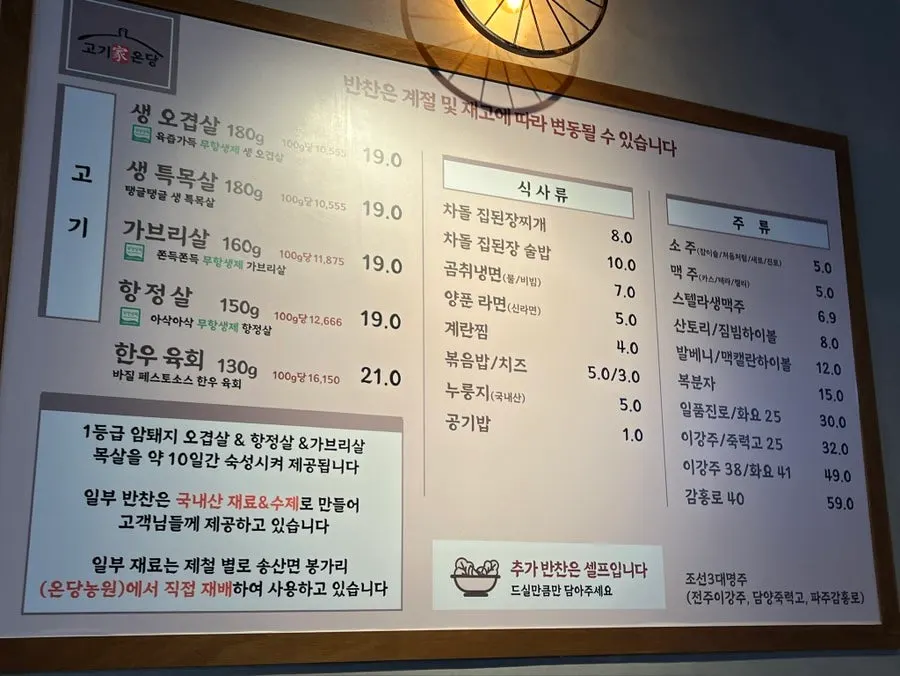 고기家온당
반찬은 계절 및 재고에 따라 변동될 수 있습니다
고기
생 오겹살 180g 100g당 10,555 19.0
육즙가득 무항생제 생 오겹살
생 특목살 180g 100g당 10,555 19.0
탱글탱글 생 특목살
가브리살 160g 100g당 11,875 19.0
쫀득쫀득 무항생제 가브리살
항정살 150g 100g당 12,666 19.0
아삭아삭 무항생제 항정살
한우 육회 130g 100g당 16,150 21.0
바질 페스토소스 한우 육회
1등급 암돼지 오겹살 & 항정살 &가브리살
목살을 약 10일간 숙성시켜 제공됩니다
일부 반찬은 국내산 재료&수제로 만들어
고객님들께 제공하고 있습니다
일부 재료는 제철 별로 송산면 봉가리
(온당농원)에서 직접 재배하여 사용하고 있습니다
식사류
차돌 집된장찌개 8.0
차돌 집된장 술밥 10.0
곰취냉면(물/비빔) 7.0
양푼 라면(신라면) 5.0
계란찜 4.0
볶음밥/치즈 5.0/3.0
누룽지(국내산) 5.0
공기밥 1.0
추가 반찬은 셀프입니다
드실만큼만 담아주세요
주류
소주(참이슬/처음처럼/새로/진로) 5.0
맥주(카스/테라/켈리) 5.0
스텔라생맥주 6.9
산토리/짐빔하이볼 8.0
발베니/맥캘란하이볼 12.0
복분자 15.0
일품진로/화요 25 30.0
이강주/죽력고 25 32.0
이강주 38/화요 41 49.0
감홍로 40 59.0
조선3대명주
(전주이강주, 담양죽력고, 파주감홍로)